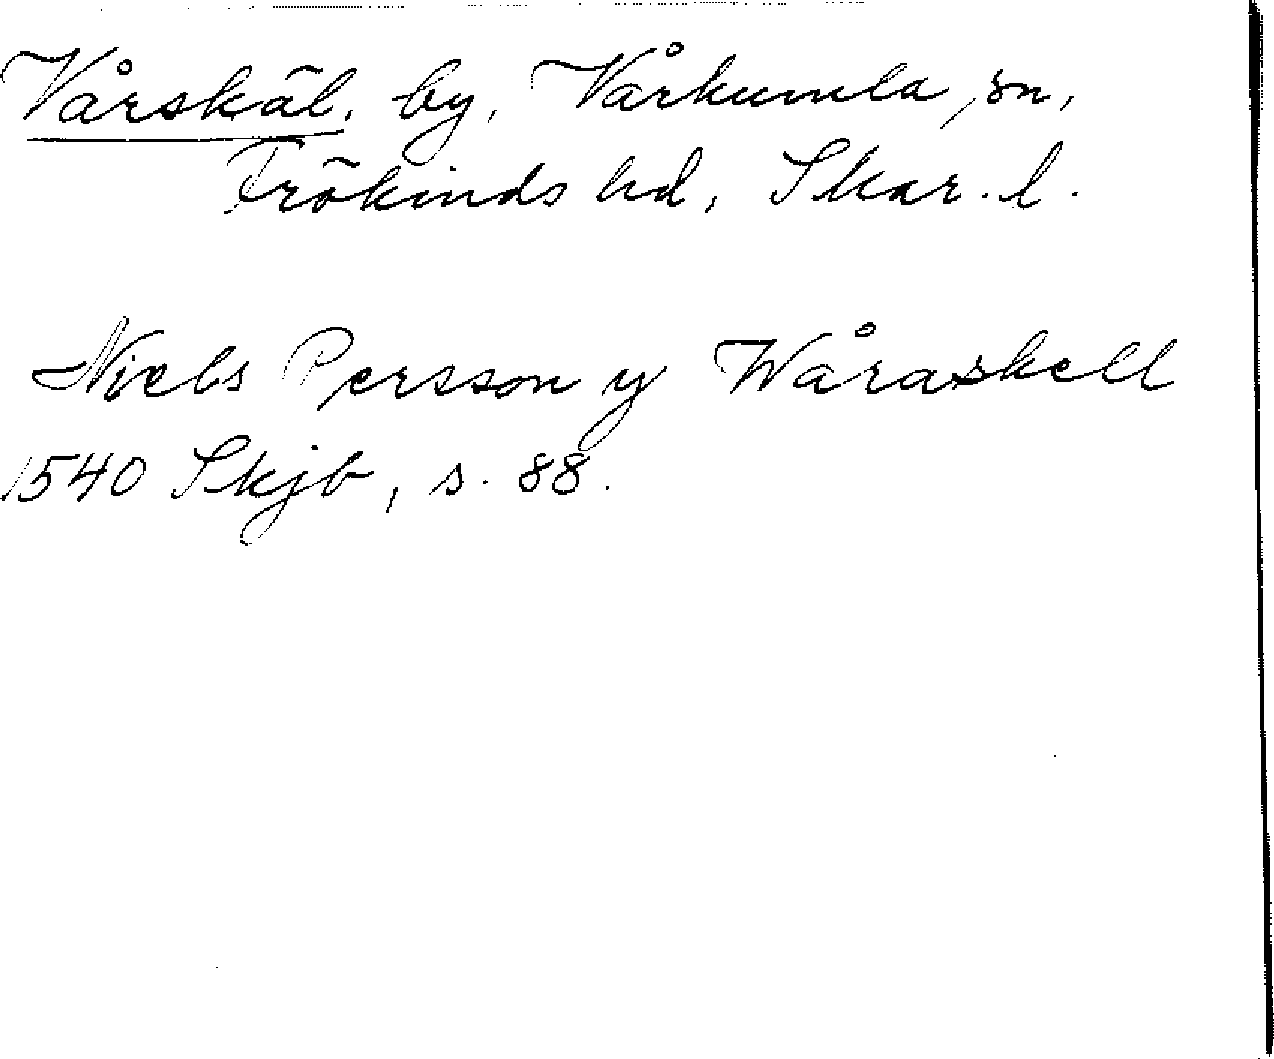 Vårskäl, by, Vårkumla sn,
Frökinds hd, Skar. l.
Niels Persson y Wåraskell
1540 Skjb, s. 88.